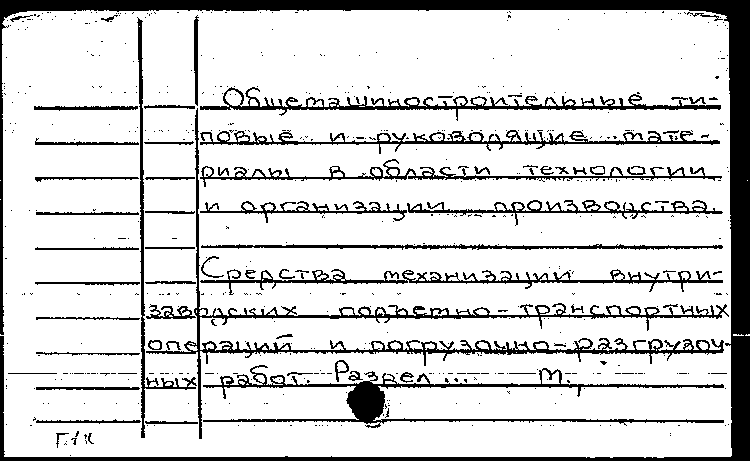 Общемашиностроительные ти-
повые и руководящие мате-
риалы в области технологии
и организации производства.
Средства механизации внутри-
заводских подъемно-транспортных
операций и погрузочно-разгрузоч-
ных работ. Раздел ... М.,